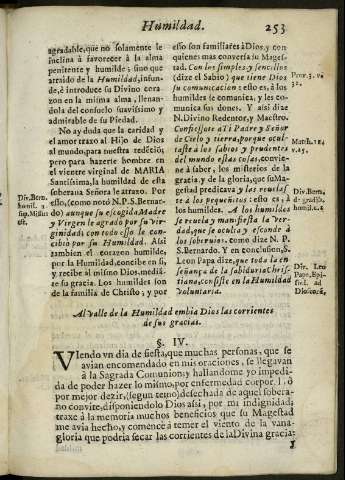 Humildad. 253
agradable, que no solamente le
inclina à favorecer à la alma
penitente y humilde; sino que
atraido de la Humildad, infun-
de, è introduce su Divino cora-
zon en la misma alma, llenan-
dola del consuelo suavissimo y
admirable de su Piedad.
No ay duda que la caridad y
el amor traxo al Hijo de Dios
al mundo, para nuestra redẽciõ;
pero para hazerse hombre en
el vientre virginal de MARIA
Santissima, la humildad de esta
soberana Señora le atraxo. Por
esso, (como notò N. P. S. Bernar-
do) aunque su escogida Madre
y Virgen le agradò por su vir-
ginidad; con todo esso le con-
cibiò por su Humildad. Assi
tambien el corazon humilde,
por la Humildad, concibe en si,
y recibe al mismo Dios, mediã-
te su gracia. Los humildes son
de la familia de Christo; y por
Div. Bern.
homil. 1
sup. Missus
est.
esso son familiares à Dios, y con
quienes mas conversa su Mages-
tad. Con los simples y sencillos
(dize el Sabio) que tiene Dios
su comunicacion: esto es, à los
humildes se comunica, y les co-
munica sus dones. Y assi dize
N. Divino Redentor, y Maestro.
Confiessote à Ti Padre y Señor
de Cielo y tierra, porque ocul-
taste à los sabios y prudentes
del mundo estas cosas, convie-
ne à saber, los misterios de la
gracia, y de la gloria, que su Ma-
gestad predicava y las revelas-
te à los pequeñitos: esto es, à
los humildes. A los humildes
se revela y manifiesta la ver-
dad, que se oculta y esconde à
los sobervios. como dize N. P.
S. Bernardo. Y en conclusion, S.
Leon Papa dize, que toda la en-
señança de la sabiduria Chris-
tiana, consiste en la Humildad
voluntaria.
Prov. 3. v.
32.
Matth. 11.
v. 25.
Div. Bern.
de gradib.
humil. c. 2
Div. Leo
Pape, Epi-
Al valle de la Humildad embia Dios las corrientes
de sus gracias.
§. IV.
VIendo vn dia de fiesta, que muchas personas, que se
avian encomendado en mis oraciones, se llegavan
à la Sagrada Comunion; y hallandome yo impedi-
da de poder hazer lo mismo, por enfermedad corpor l, ò
por mejor dezir, (segun temo) desechada de aquel sobera-
no convite, disponiendolo Dios assi, por mi indignidad;
traxe à la memoria muchos beneficios que su Magestad
me avia hecho, y comencè à temer el viento de la vana-
gloria que podria secar las corrientes de la Divina gracia: